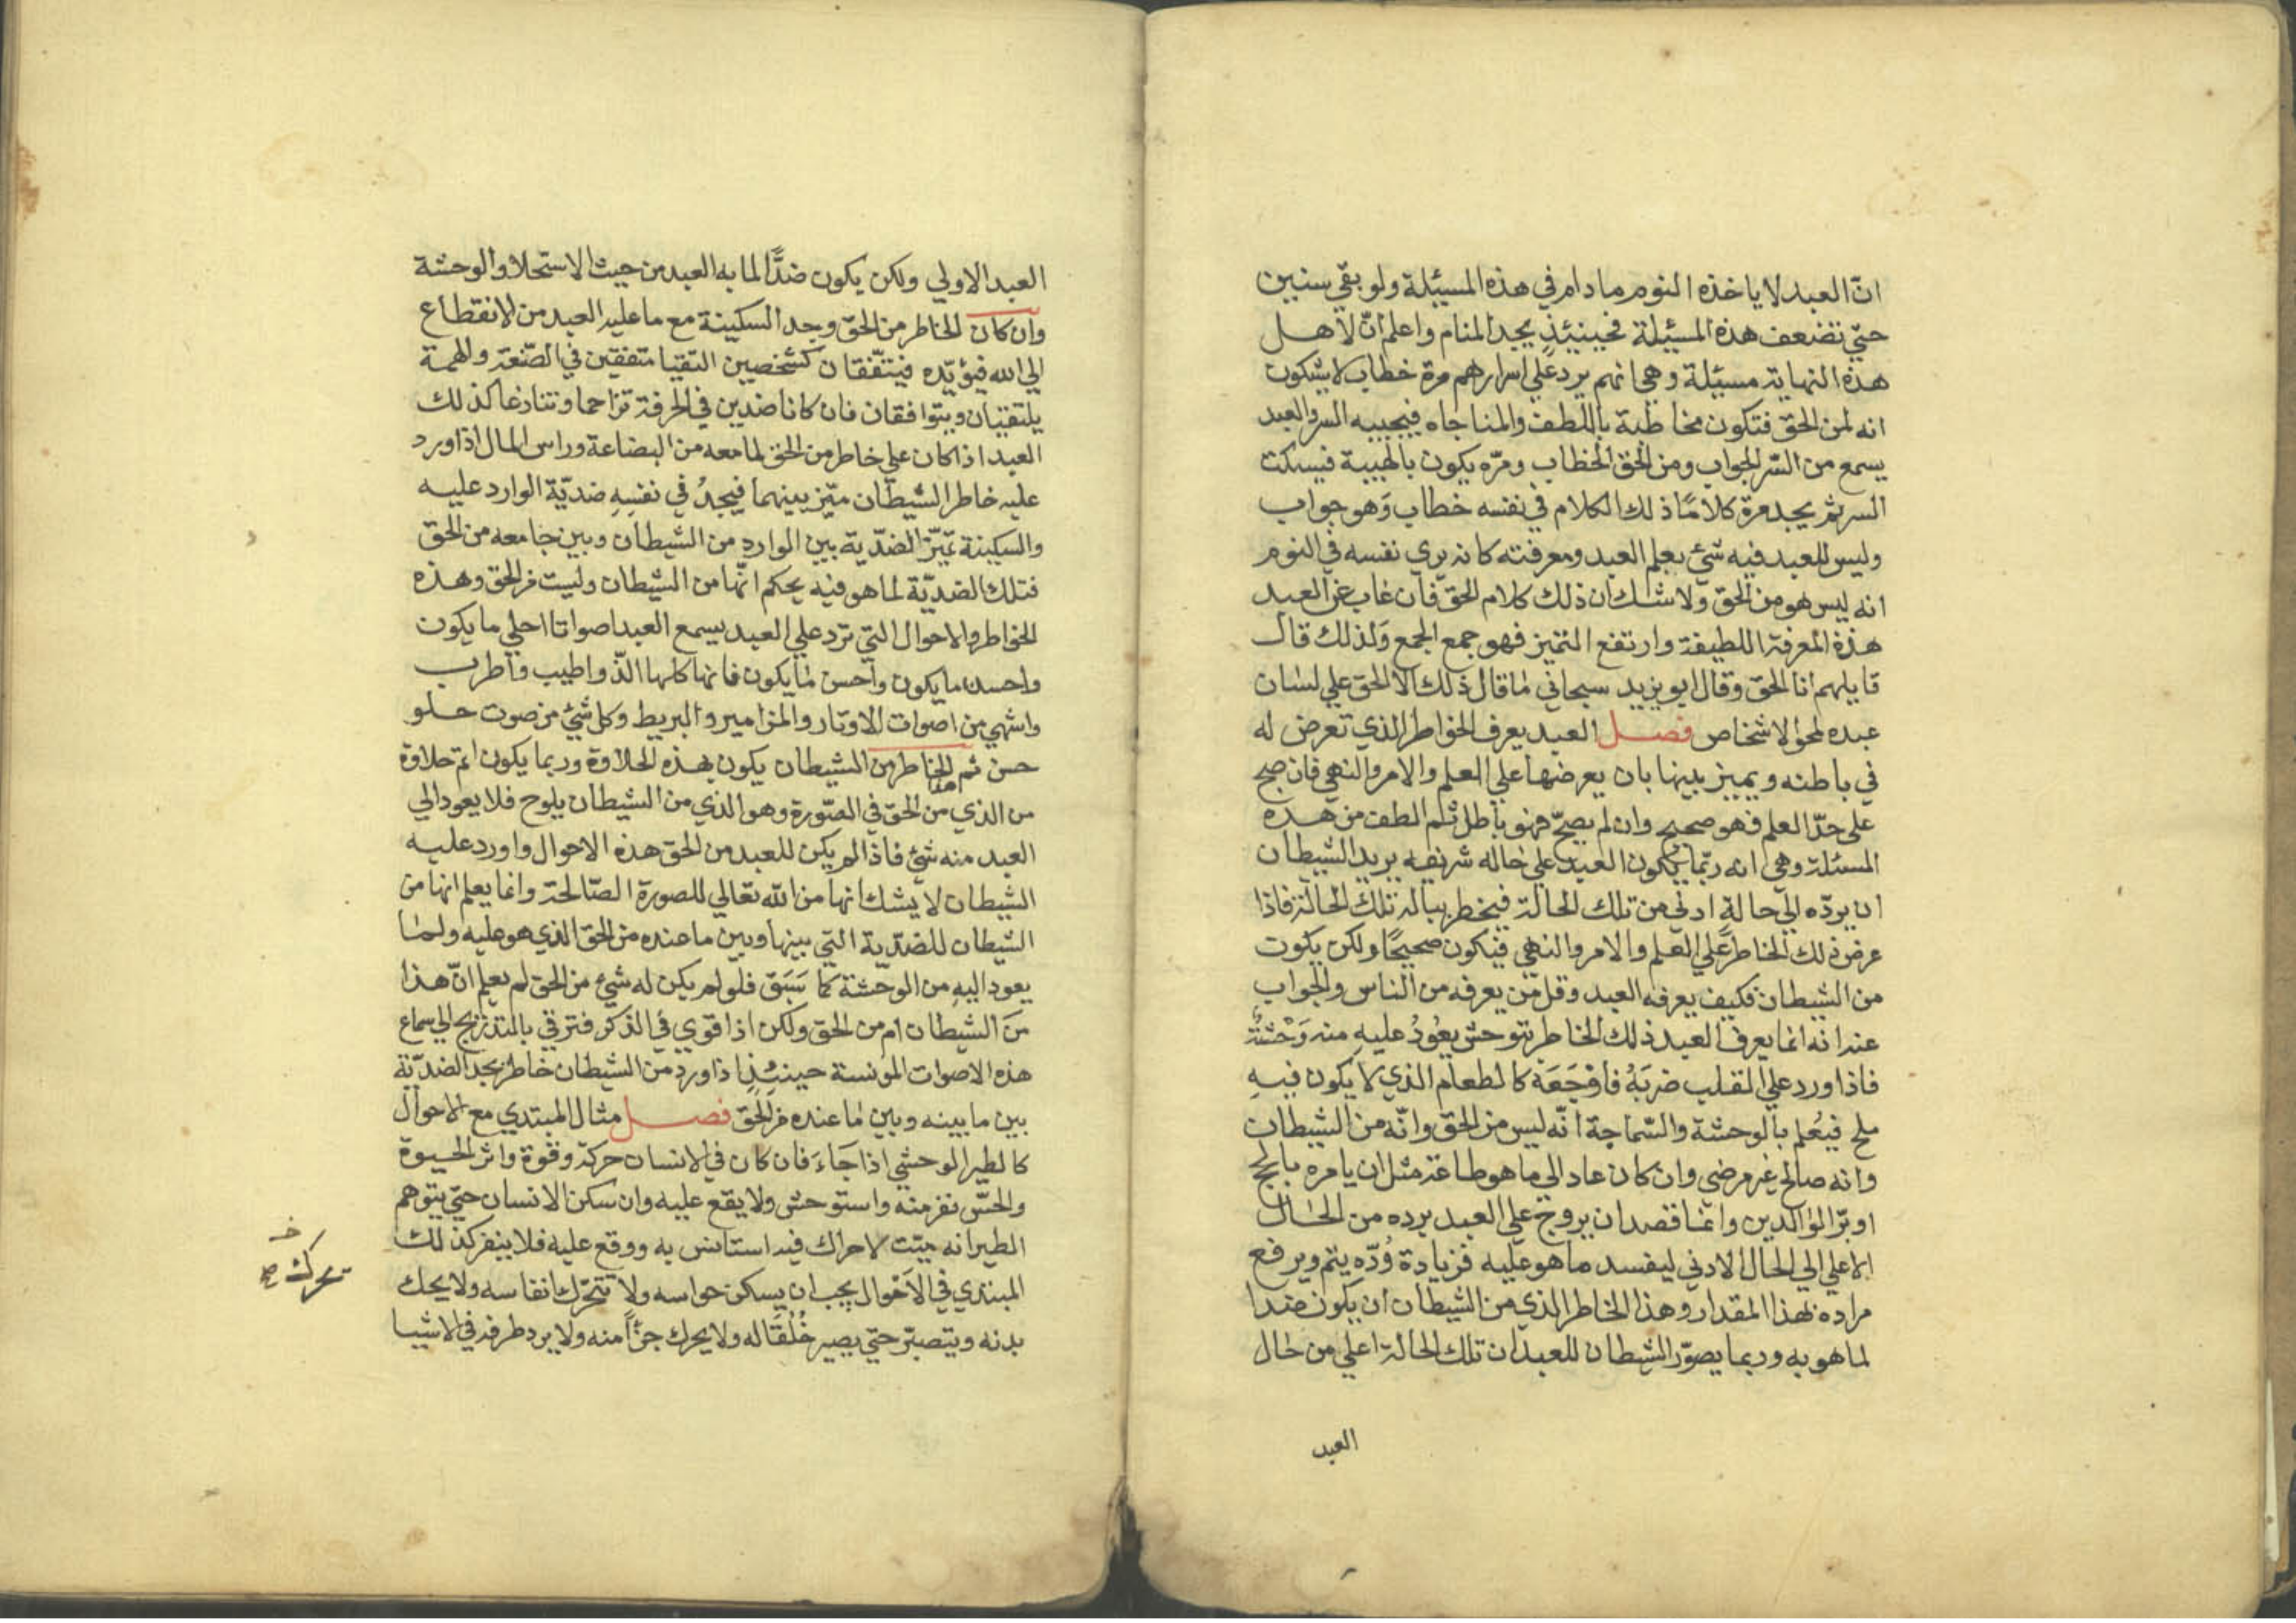 انّ العبد لا ياخذه النوم ما دام في هذه المسيئلة ولو بقي سنين
حتّي تضعف هذه المسيئلة فحينئذٍ يجد المنام واعلم انّ لاهل
هذه النهاية مسيئلة وهي انهم يرد علي اسرارهم مرة خطاب لا يشكون
انه لمن الحق فتكون مخاطبة باللطف والمناجاه فيجيبه السر والعبد
يسمع من السّر الجواب ومن الحق الخطاب ومرّه يكون بالهيبة فيسكت
السر ثم يجد مرة كلامًا ذلك الكلام في نفسه خطاب وَهو جواب
وليس للعبد فيه شئ بعلم العبد ومعرفته كانه يري نفسه في النوم
انه ليس هو من الحقّ ولا شك ان ذلك كلام الحقّ فان غاب عن العبد
هذة المعرفة اللطيفة وارتفع التميز فهو جمع الجمع وَلذلك قال
قايلهم انا الحق وقال ابو يزيد سبحاني ما قال ذلك الا الحق علي لسان
عبده لمحو الاشخاص فصل العبد يعرف الخواطر الذي تعرض له
في باطنه ويميز بينها بان يعرضها علي العلم والامر والنهي فان صح
علي حدّ العلم فهو صحيح وان لم يصحّ فهو باطل ثم الطف من هذه
المسئلة وهي انه ربّما يكون العبد علي حاله شريفه يريد الشيطان
ان يردّه الي حالةٍ ادني من تلك الحالة فيخطر بباله تلك الحالة فاذا
عرض ذلك الخاطر علي العلم والامر والنهي فيكون صحيحًا ولكن يكون
من الشيطان فكيف يعرفه العبد وقل مَن يعرفه من الناس والجواب
عند انه انما يعرف العبد ذلك الخاطر بتوحش يعُودُ عليهِ منه وَحْشَتُهُ
فاذا ورد علي القلب ضربَهُ فاوْجَعَهَ كالطعام الذي لا يكون فيهِ
ملح فيُعلم بالوحشة والسّماجة انّه ليس من الحق وانّه من الشيطان
وانه صالح غير مرضي وان كان عاد الي ما هو طاعة مثل ان يامره بالحج
او برّ الوالدين وانما قصد ان يروج علي العبد يرده من الحال
الاعلي الي الحال الادني ليفسد ما هو عليه فزيادة وُدّه يتم ويرفع
مراده بهذا المقدار وهذا الخاطر الذي من الشيطان ان يكون ضدا
لما هو به وربما يصوّر الشيطان للعبد ان تلك الحالة اعلي من حال
العبد
العبد الاولي ولكن يكون ضدًّا لما به العبد من حيث الاستحلا والوحشة
وان كان الخاطر من الحقّ وجد السكينة مع ما عليه العبد من الانقطاع
الي الله فيؤيّده فيتفّقان كشخصين التقيا متفقين في الصّنعة والهمة
يلتقيان ويتوافقان فان كانا ضدين في الحرفة تزاحما وتنازعا كذلك
العبد اذا كان علي خاطر من الحق لما معه من البضاعة وراس المال اذا ورد
عليه خاطر الشيطان ميّز بينهما فيجدُ في نفسِهِ ضديّة الوارد عليه
والسكينة تميّز الضدّية بين الوارد من الشيطان وبين ما معه من الحق
فتلك الضديّة لما هو فيه يحكم انّها من الشيطان وليست من الحق وهذه
الخواطر والاحوال التي ترد علي العبد يسمع العبد اصواتا احلي ما يكون
واحسن ما يكون واحسن ما يكون فانها كلها الذّ واطيب واطرب
واشهي من اصوات الاوتار والمزامير والبربط وكل شئ من صوت حلو
حسن ثم الخاطر من الشيطان يكون بهذه الحلاوة وربما يكون اتم حلاوة
من الذي من الحقّ في الصّورة وهو الذي من الشيطان يلوح فلا يعود الي
العبد منه شئ فاذا لم يكن للعبد من الحق هذه الاحوال واورد عليه
الشيطان لا يشك انها من الله تعالي للصورة الصّالحة وانما يعلم انها من
الشيطان للضدّية التي بينها وبين ما عنده من الحق الذي هو عليه ولما
يعود اليهِ من الوحشة كما سَبَق فلو لم يكن له شئ من الحق لم يعلم انّ هذا
منَ الشيطان ام من الحق ولكن اذا قوي في الذكر فترقي بالتدريج الي سماع
هذه الاصوات المونسة حينئذٍ اذا ورد من الشيطان خاطر يجد الضديّة
بين ما بينه وبين ما عنده من الحق فصل مثال المبتدي مع الاحوال
كالطير الوحشي اذا جَاءَ فان كان في الانسان حركة وقوة واثر الحيوة
والحسّ نفر منه واستوحش ولا يقع عليه وان سكن الانسان حتي يتوهم
الطير انه ميّت لا حراك فيه استانس به ووقع عليه فلا ينفر كذلك
المبتدي في الاَحْوال يجب ان يسكن حواسه ولا تتحرّك انفاسه ولا يحك
بدنه ويتصبّر حتي يصير خُلُقًا له ولا يحرك جزأً منه ولا يرد طرفه في الاشيا
خـ
تحرك صح